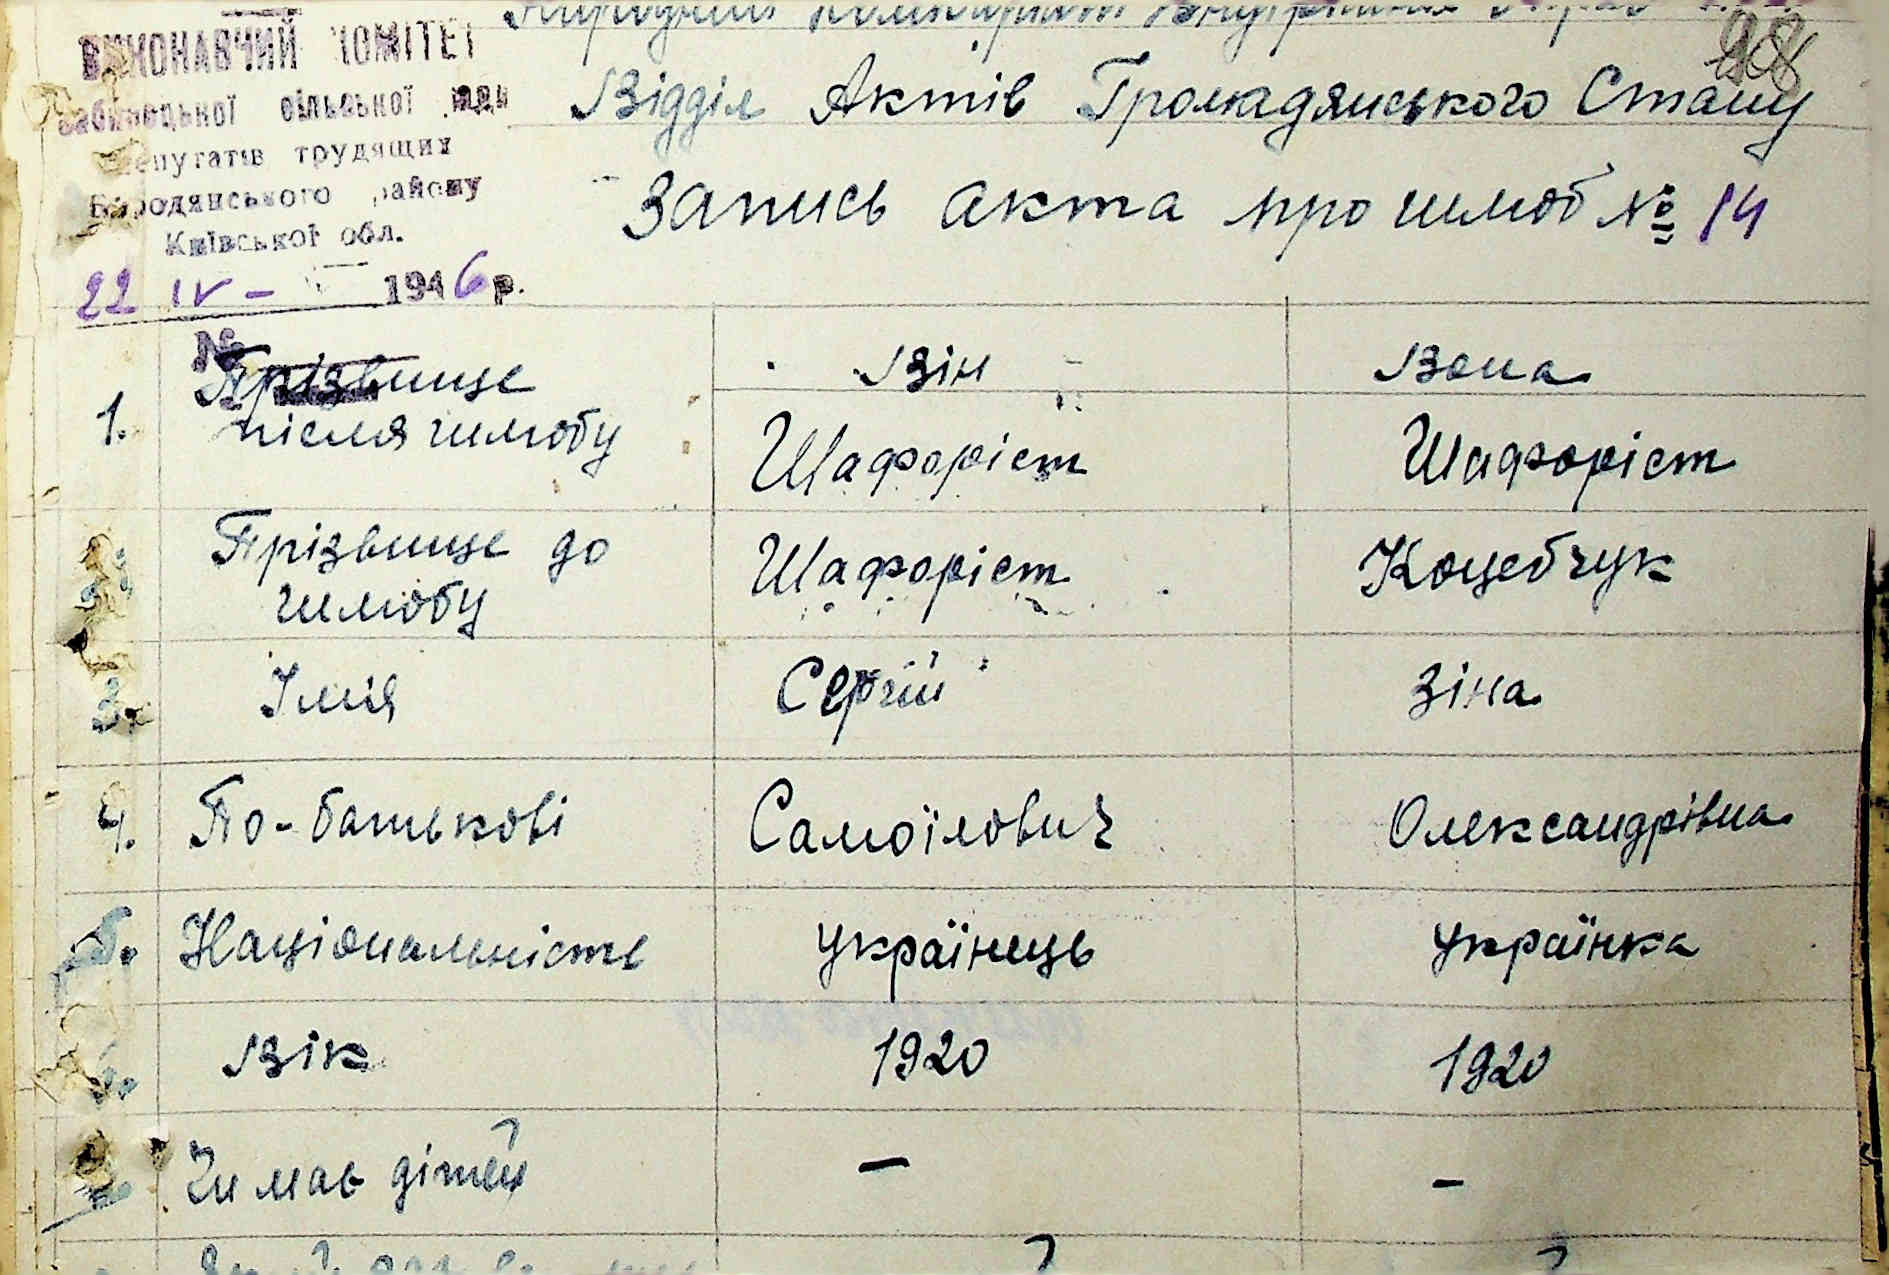 Народний Комісаріат Внутрішніх Справ
98
ВИКОНАВЧИЙ КОМІТЕТ
сільської ради
депутатів трудящих
Бородянського району
Київської обл.
22 IV - 1946 р.
№
Відділ Актів Громадянського Стану
Запись акта про шлюб № 14
Він Вона
1. Прізвище після шлюбу Шафоріст Шафоріст
2. Прізвище до шлюбу Шафоріст Коцебчук
3. Імія Сергій Зіна
4. По-батькові Самоїлович Олександрівна
5. Національність українець українка
6. Вік 1920 1920
Чи має дітей — –